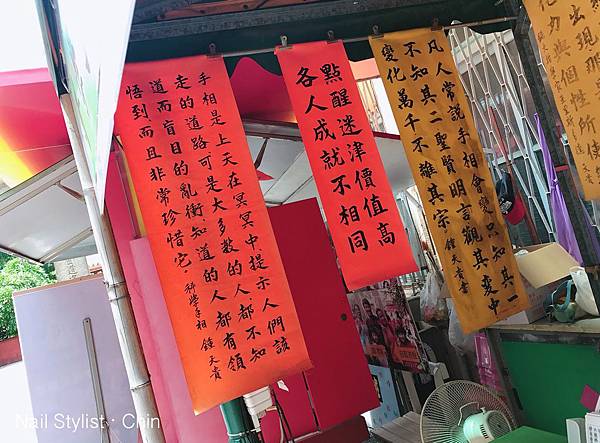 手相是上天在冥冥中提示人們該
走的道路可是大多數的人都不知
道而盲目的亂衝知道的人都有領
悟到而且非常珍惜它。科學手相 鍾天貴
點醒迷津價值高
各人成就不相同
凡人常說手相會變只知其一
不知其二聖賢明言觀其變中
變化萬千不離其宗 鍾天貴
出現那
力與個性所使
Nail Stylist · Chin